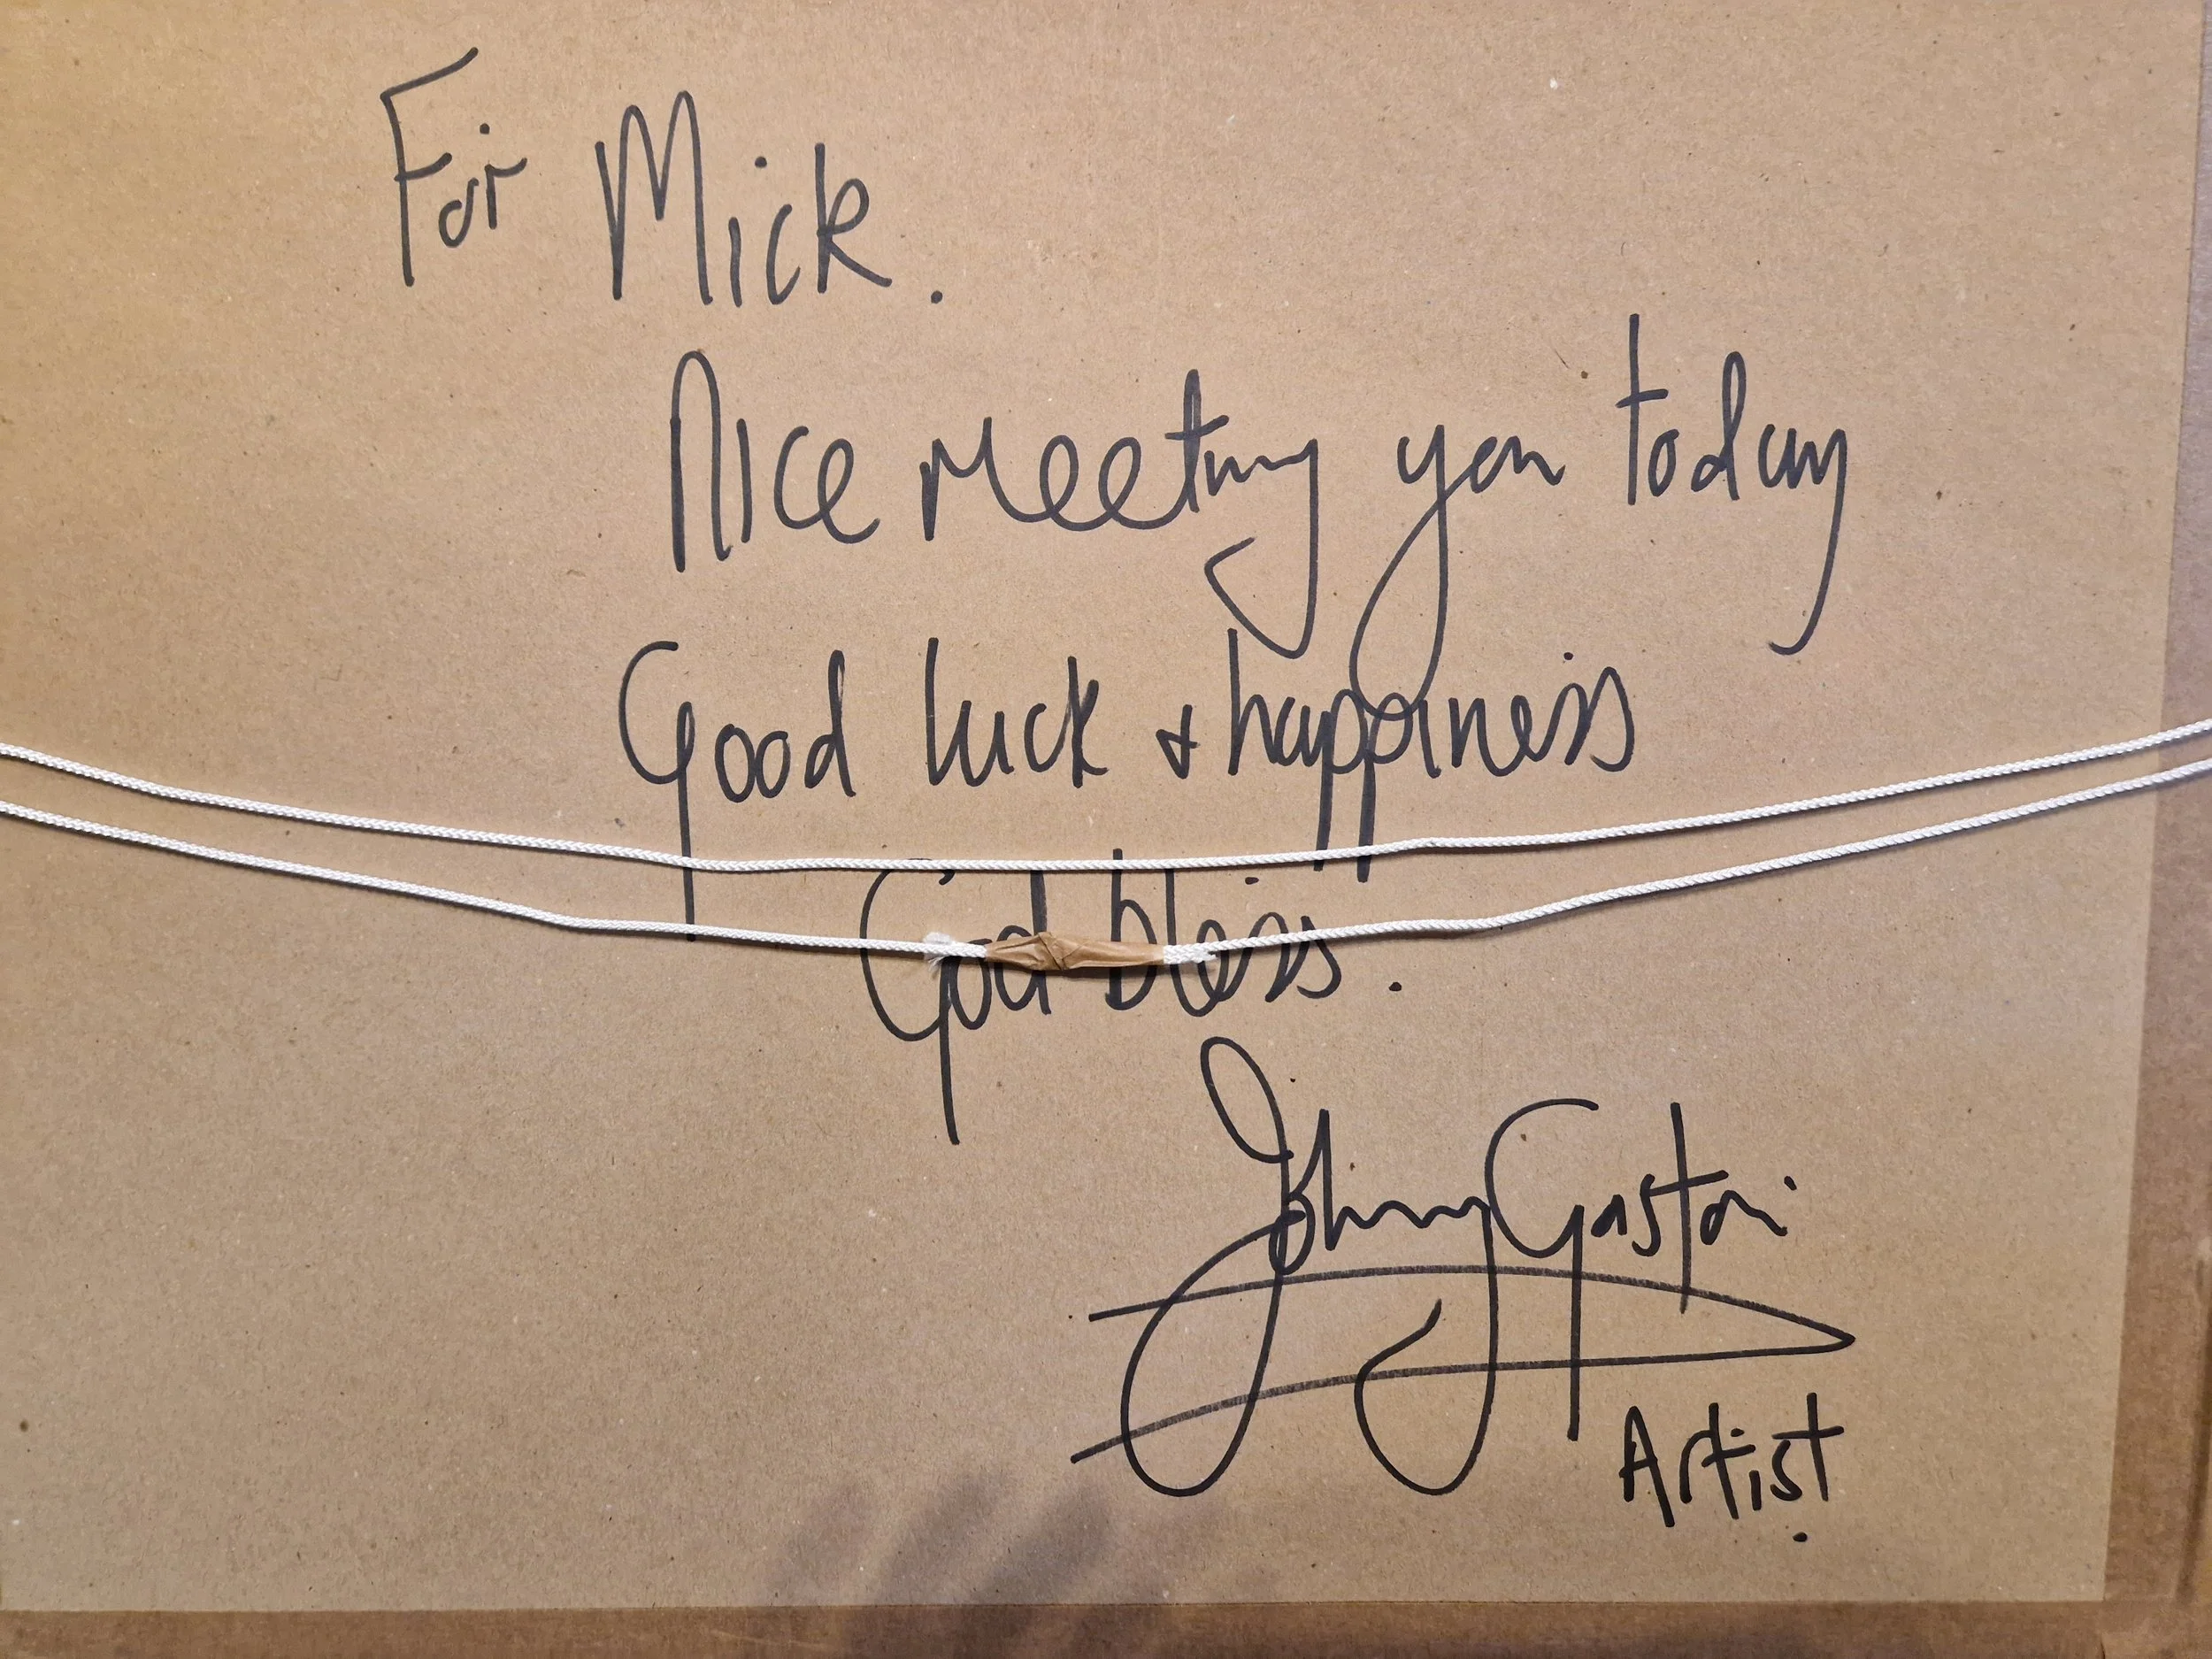 For Mick.
Nice meeting you today
Good luck & happiness
God bless.
Johnny Gaston
Artist